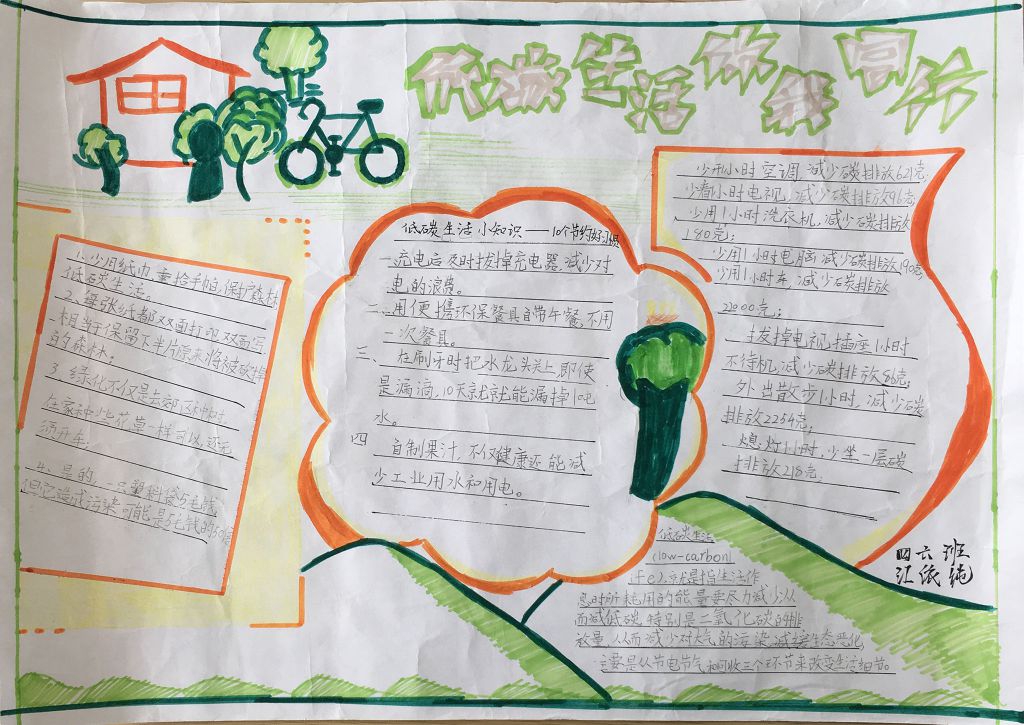 低碳生活你我同行
1、少用纸巾,重拾手帕,保护森林,
低碳生活。
2、每张纸都双面打印,双面写,
相当于保留下半片原来将被砍掉
的森林。
3、绿化不仅是去郊区种树,
在家种些花草一样可以,还无
须开车;
4、是的,一只塑料袋5毛钱
但它造成污染可能是5毛钱的50倍
低碳生活小知识——10个节约好习惯
一、充电后及时拔掉充电器,减少对
电的浪费。
二、用便携环保餐具自带午餐,不用
一次餐具。
三、在刷牙时把水龙头关上,即使
是漏滴,10天就能漏掉1吨
水。
四 自制果汁,不仅健康还能减
少工业用水和用电。
少开1小时空调,减少碳排放621克;
少看1小时电视,减少碳排放96克;
少用1小时洗衣机,减少碳排放
180克;
少用1小时电脑,减少碳排放190克;
少用1小时车,减少碳排放
22000克;
拔掉电视插座1小时
不待机,减少碳排放86克;
外出散步1小时,减少碳
排放2254克;
熄灯1小时,少坐一层碳
排放218克;
低碳生活
(low-carbon
life),就是指生活作
息时所耗用的能量要尽力减少从
而减低碳,特别是二氧化碳的排
放量,从而减少对大气的污染,减缓生态恶化,
主要是从节电节气和回收三个环节来改变生活细节。
四六班
江依纯